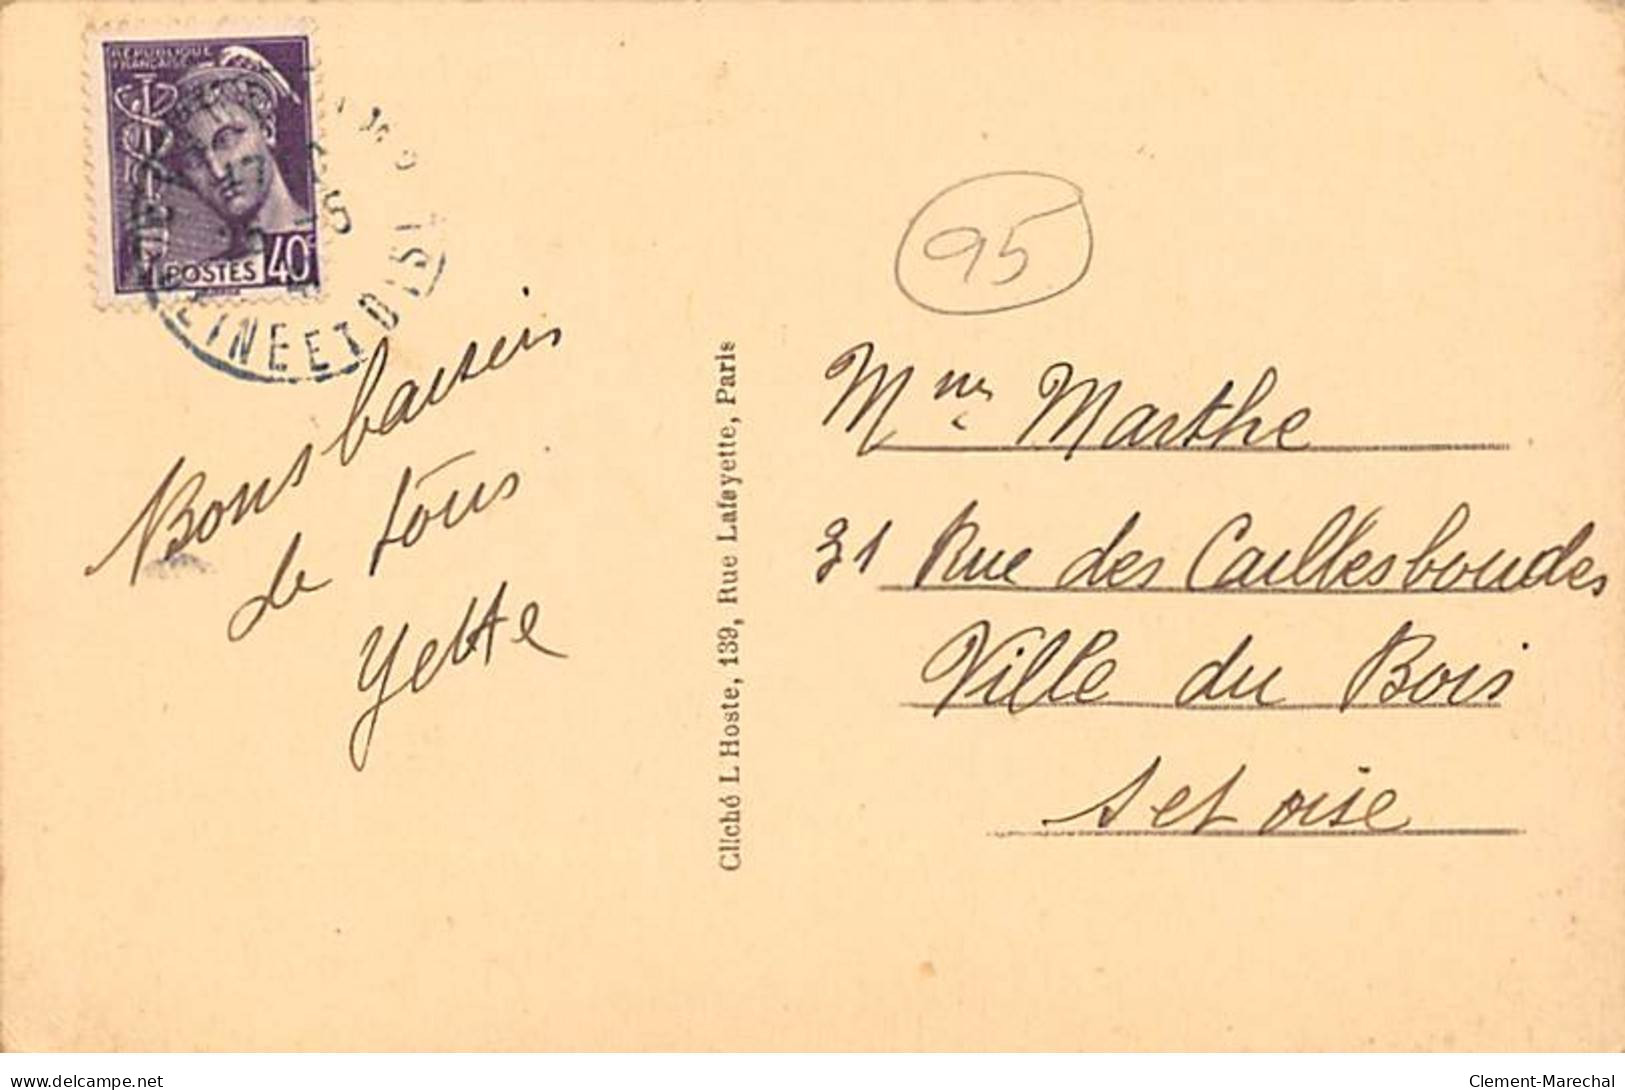 RÉPUBLIQUE
FRANÇAISE
POSTES 40c
SEINE ET OISE
95
Bons baisers
de tous
Yette
Cliché L Hoste, 139, Rue Lafayette, Paris
Mme Marthe
31 Rue des Caillesboudes
Ville du Bois
S et oise
delcampe.net
Clement-Marechal